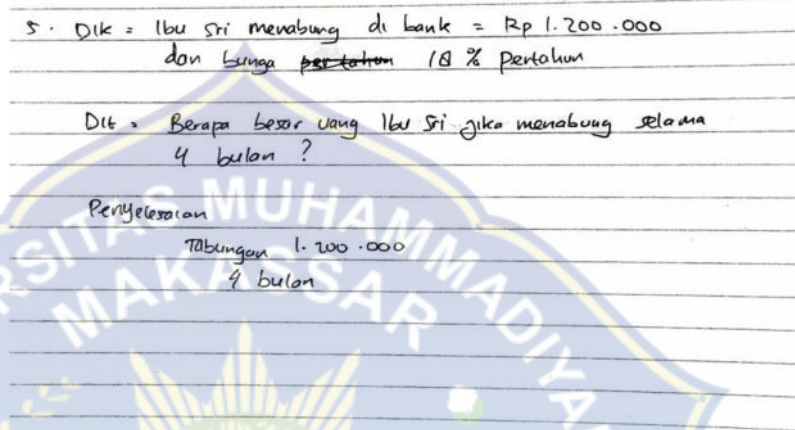 5. Dik = Ibu Sri menabung di bank = Rp 1.200.000
dan bunga per tahun 18 % pertahun
Dit = Berapa besar uang Ibu Sri jika menabung selama
4 bulan ?
Penyelesaian
Tabungan 1.200.000
4 bulan
RSITAS MUHAMMADIYA
MAKASSAR